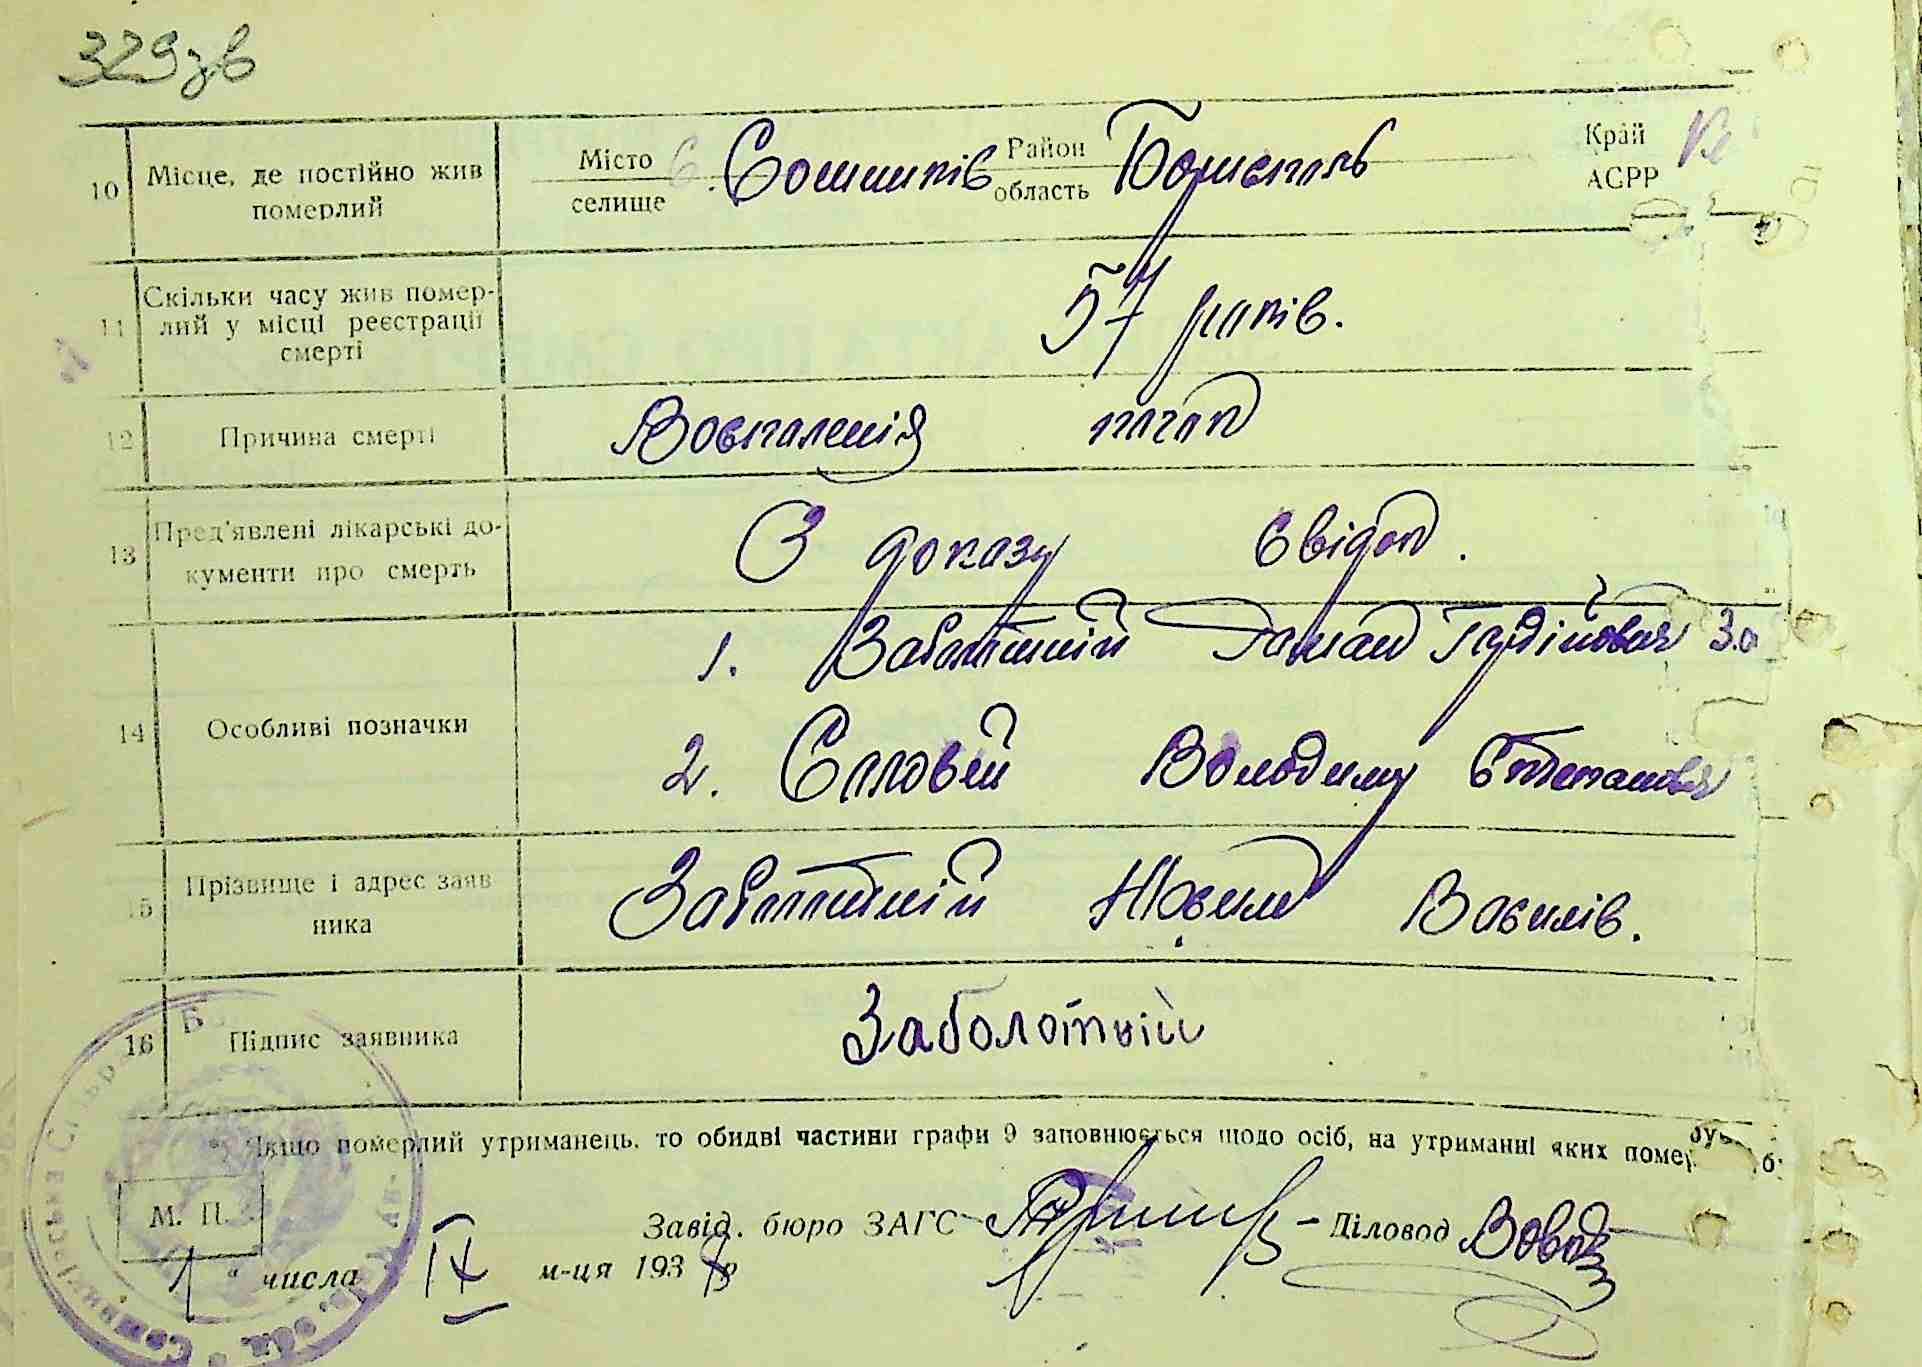 329зв
10 Місце, де постійно жив померлий Місто селище с. Сошників Район область Бориспіль Край АСРР
11 Скільки часу жив померлий у місці реєстрації смерті 57 років.
12 Причина смерті Воспаленія
13 Пред'явлені лікарські документи про смерть З доказу свідків.
14 Особливі позначки
1. Заболотній
2. Соловей Володимир Степанович
15 Прізвище і адрес заявника Заболотній Василів.
16 Підпис заявника Заболотній
Якщо померлий утриманець, то обидві частини графи 9 заповнюється щодо осіб, на утриманні яких
М. П.
Завід. бюро ЗАГС Діловод
1 " числа IX м-ця 193